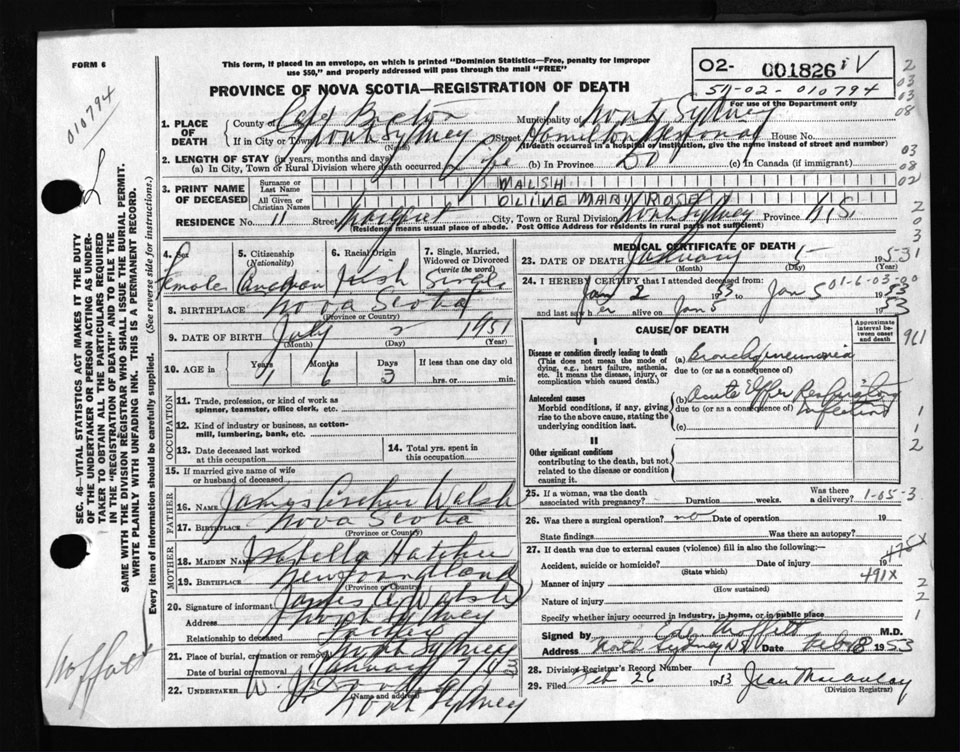 FORM 6
This form, if placed in an envelope, on which is printed "Dominion Statistics—Free, penalty for improper
use $50," and properly addressed will pass through the mail "FREE"
O2- 001826
51-02-010794
For use of the Department only
010794
PROVINCE OF NOVA SCOTIA—REGISTRATION OF DEATH
1. PLACE OF DEATH
County of Cape Breton Municipality of North Sydney
If in City or Town North Sydney (Name) Street Hamilton Memorial House No.
(If death occurred in a hospital or institution, give the name instead of street and number)
2. LENGTH OF STAY (in years, months and days)
(a) In City, Town or Rural Division where death occurred Life (b) In Province Do (c) In Canada (if immigrant)
3. PRINT NAME OF DECEASED
Surname or Last Name WALSH
All Given or Christian Names OLIVE MARY ROSE
RESIDENCE No. 11 Street Margaret City, Town or Rural Division North Sydney Province N.S.
(Residence means usual place of abode. Post Office Address for residents in rural parts not sufficient)
4. Sex Female
5. Citizenship (Nationality) Canadian
6. Racial Origin Irish
7. Single, Married, Widowed or Divorced (write the word) Single
8. BIRTHPLACE Nova Scotia
(Province or Country)
9. DATE OF BIRTH July 1951
(Month) (Day) (Year)
10. AGE in Years 1 Months 6 Days 3 If less than one day old
hrs. or min.
OCCUPATION
11. Trade, profession, or kind of work as spinner, teamster, office clerk, etc.
12. Kind of industry or business, as cotton-mill, lumbering, bank, etc.
13. Date deceased last worked at this occupation
14. Total yrs. spent in this occupation
15. If married give name of wife or husband of deceased
FATHER
16. NAME James Walsh
17. BIRTHPLACE Nova Scotia
(Province or Country)
MOTHER
18. MAIDEN NAME Isabella
19. BIRTHPLACE Newfoundland
(Province or Country)
20. Signature of informant James A Walsh
Address North Sydney
Relationship to deceased Father
21. Place of burial, cremation or removal North Sydney
Date of burial or removal January 7
22. UNDERTAKER W. J.
(Name and address)
North Sydney
MEDICAL CERTIFICATE OF DEATH
23. DATE OF DEATH January 5 1953
(Month) (Day) (Year)
24. I HEREBY CERTIFY that I attended deceased from:
Jan 2 1953 to Jan 5 1953
and last saw her alive on Jan 5 1953
01-6-03-00
CAUSE OF DEATH
Approximate interval between onset and death
I
Disease or condition directly leading to death
(This does not mean the mode of dying, e.g., heart failure, asthenia, etc. It means the disease, injury, or complication which caused death.)
(a) Bronchopneumonia
due to (or as a consequence of)
Antecedent causes
Morbid conditions, if any, giving rise to the above cause, stating the underlying condition last.
(b) Acute Upper Respiratory Infection
due to (or as a consequence of)
(c)
II
Other significant conditions
contributing to the death, but not related to the disease or condition causing it.
25. If a woman, was the death associated with pregnancy? Duration weeks. Was there a delivery? 1-05-3
26. Was there a surgical operation? no Date of operation 19
State findings Was there an autopsy?
27. If death was due to external causes (violence) fill in also the following:—
475X
Accident, suicide or homicide? (State which) Date of injury 19
491X
Manner of injury (How sustained)
Nature of injury
Specify whether injury occurred in industry, in home, or in public place
Signed by Moffatt M.D.
Address North Sydney N.S. Date 1953
28. Division Registrar's Record Number
29. Filed Feb 26 1953 Jean Macaulay
(Division Registrar)
SEC. 46—VITAL STATISTICS ACT MAKES IT THE DUTY
OF THE UNDERTAKER OR PERSON ACTING AS UNDER-
TAKER TO OBTAIN ALL THE PARTICULARS REQUIRED
IN THE "REGISTRATION OF DEATH" AND TO FILE THE
SAME WITH THE DIVISION REGISTRAR WHO SHALL ISSUE THE BURIAL PERMIT.
WRITE PLAINLY WITH UNFADING INK. THIS IS A PERMANENT RECORD.
Every item of information should be carefully supplied. (See reverse side for instructions.)
Moffatt